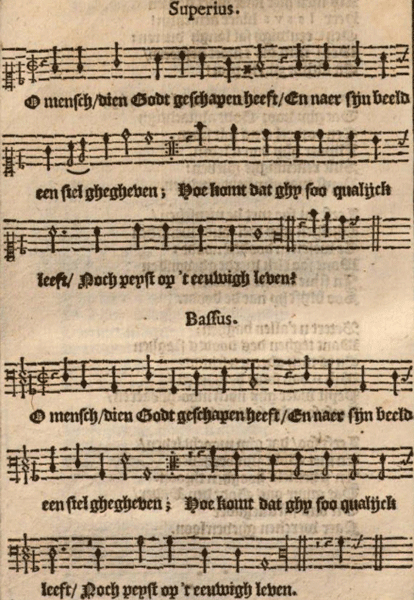 Superius.
O mensch/dien Godt geschapen heeft/En naer sijn beeld
een siel ghegheven; Hoe komt dat ghy soo qualijck
leeft/ Noch peyst op 't eeuwigh leven?
Bassus.
O mensch/dien Godt geschapen heeft/En naer sijn beeld
een siel ghegheven; Hoe komt dat ghy soo qualijck
leeft/ Noch peyst op 't eeuwigh leven.